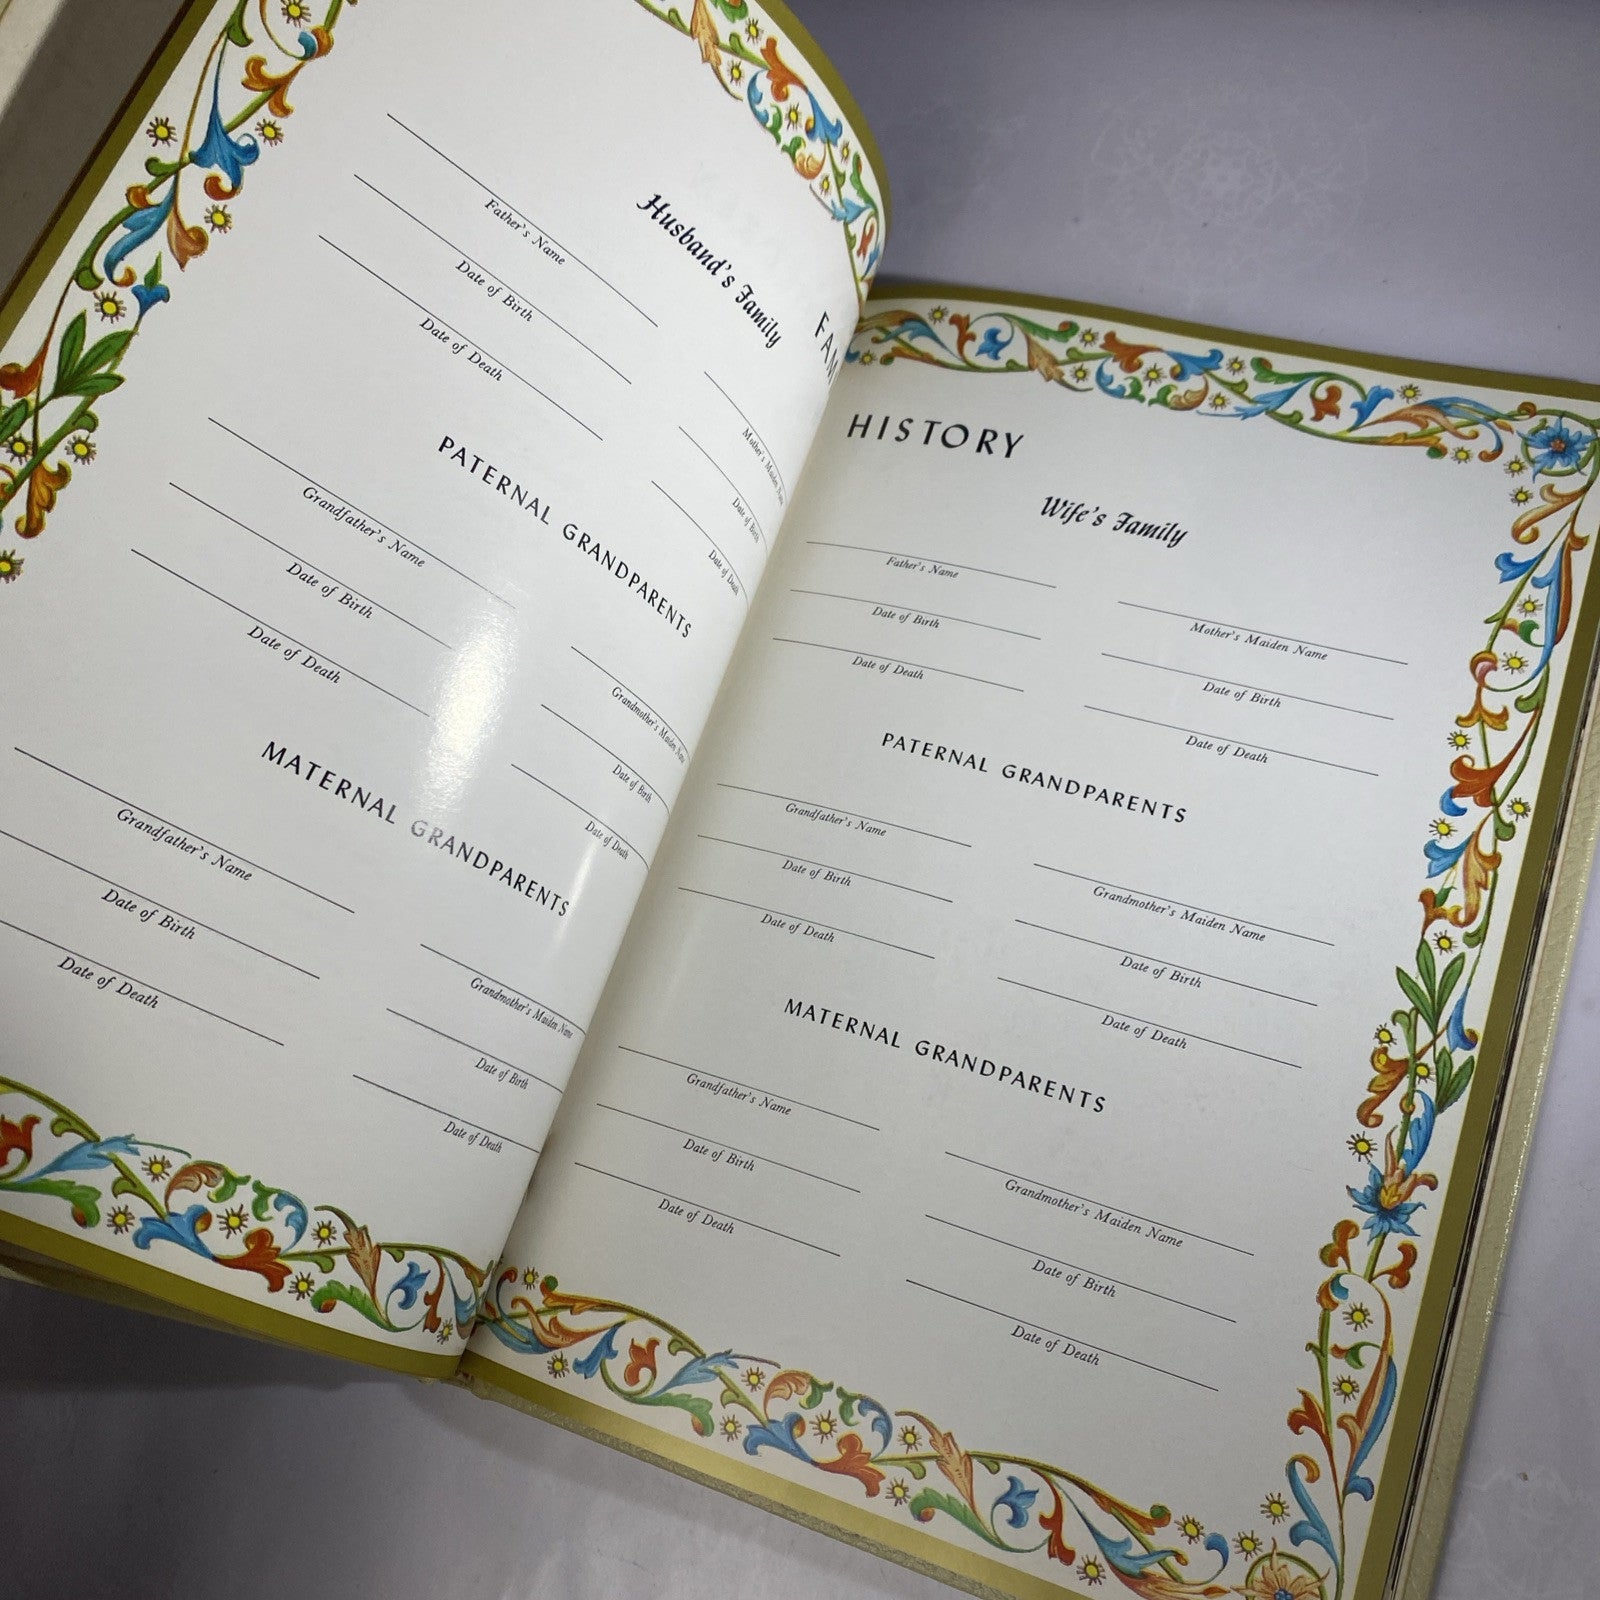 FAM
Husband's Family
Father's Name
Mother's Maiden Name
Date of Birth
Date of Birth
Date of Death
Date of Death
PATERNAL GRANDPARENTS
Grandfather's Name
Grandmother's Maiden Name
Date of Birth
Date of Birth
Date of Death
Date of Death
MATERNAL GRANDPARENTS
Grandfather's Name
Grandmother's Maiden Name
Date of Birth
Date of Birth
Date of Death
Date of Death
HISTORY
Wife's Family
Father's Name
Mother's Maiden Name
Date of Birth
Date of Birth
Date of Death
Date of Death
PATERNAL GRANDPARENTS
Grandfather's Name
Grandmother's Maiden Name
Date of Birth
Date of Birth
Date of Death
Date of Death
MATERNAL GRANDPARENTS
Grandfather's Name
Grandmother's Maiden Name
Date of Birth
Date of Birth
Date of Death
Date of Death